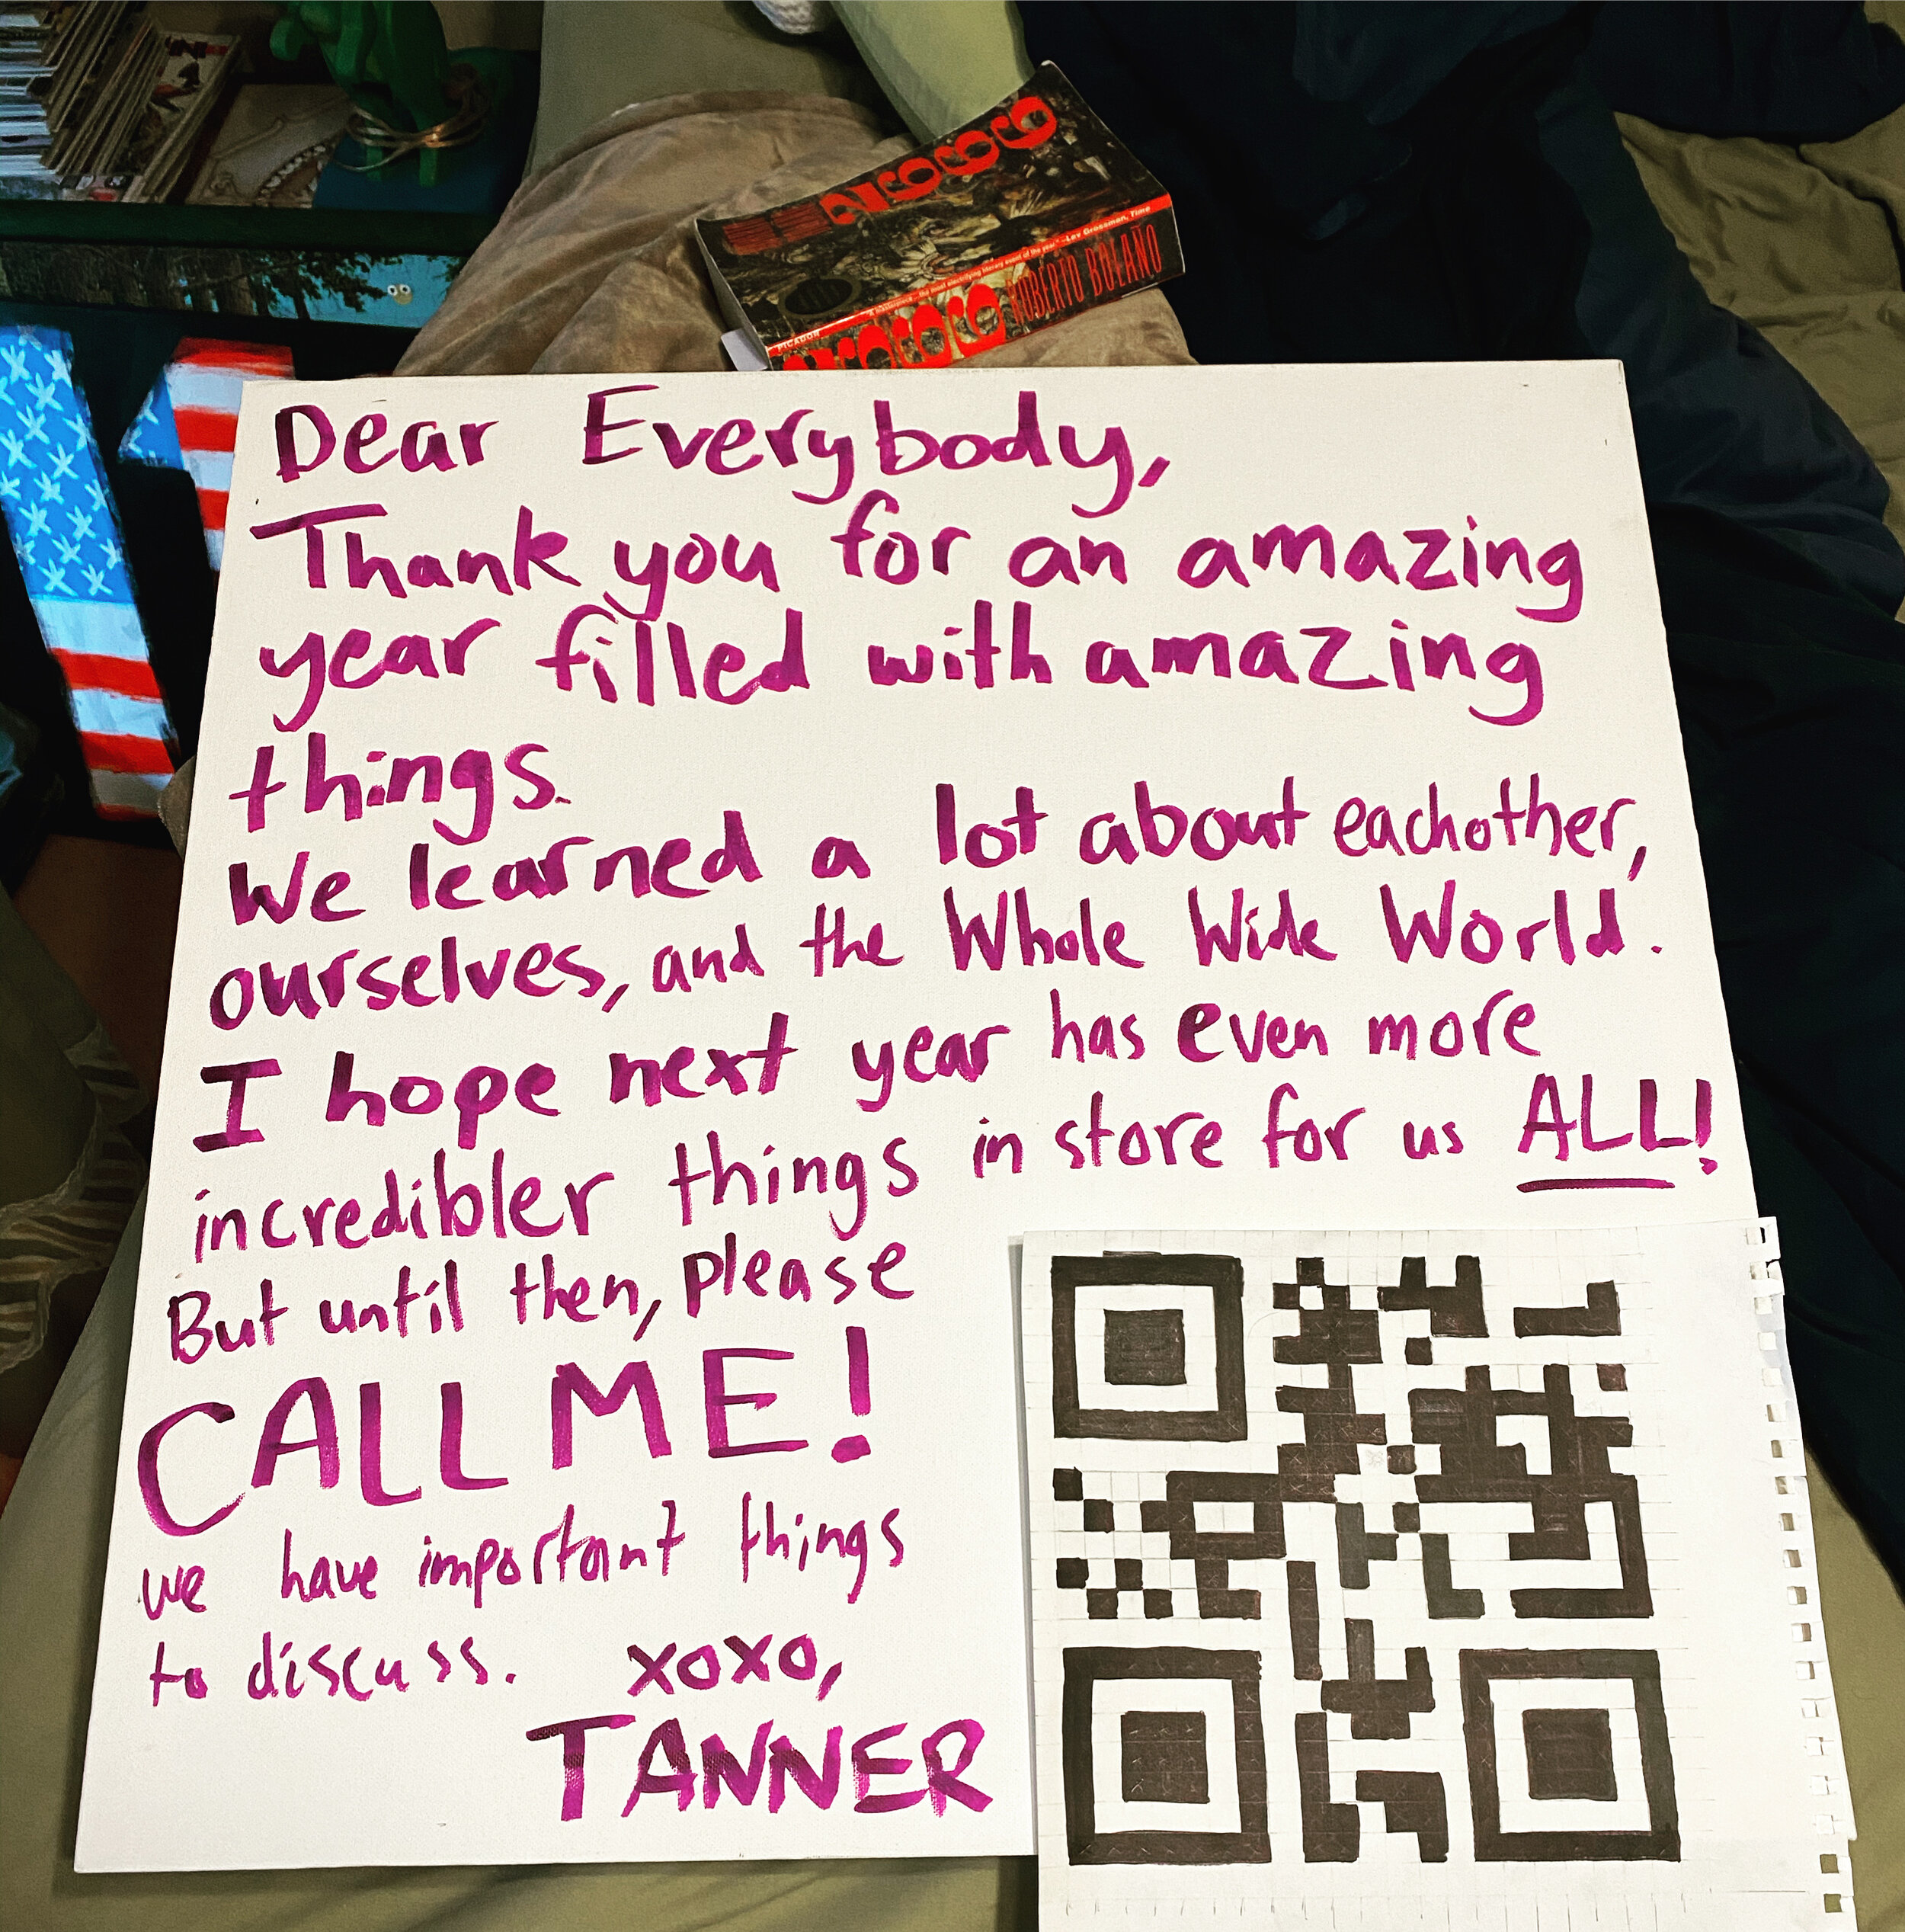 2666
"A masterpiece...the most electrifying literary event of the year." —Lev Grossman, Time
PICADOR
2666 ROBERTO BOLAÑO
Dear Everybody,
Thank you for an amazing
year filled with amazing
things.
We learned a lot about eachother,
ourselves, and the Whole Wide World.
I hope next year has even more
incredibler things in store for us ALL!
But until then, please
CALL ME!
we have important things
to discuss. xoxo,
TANNER